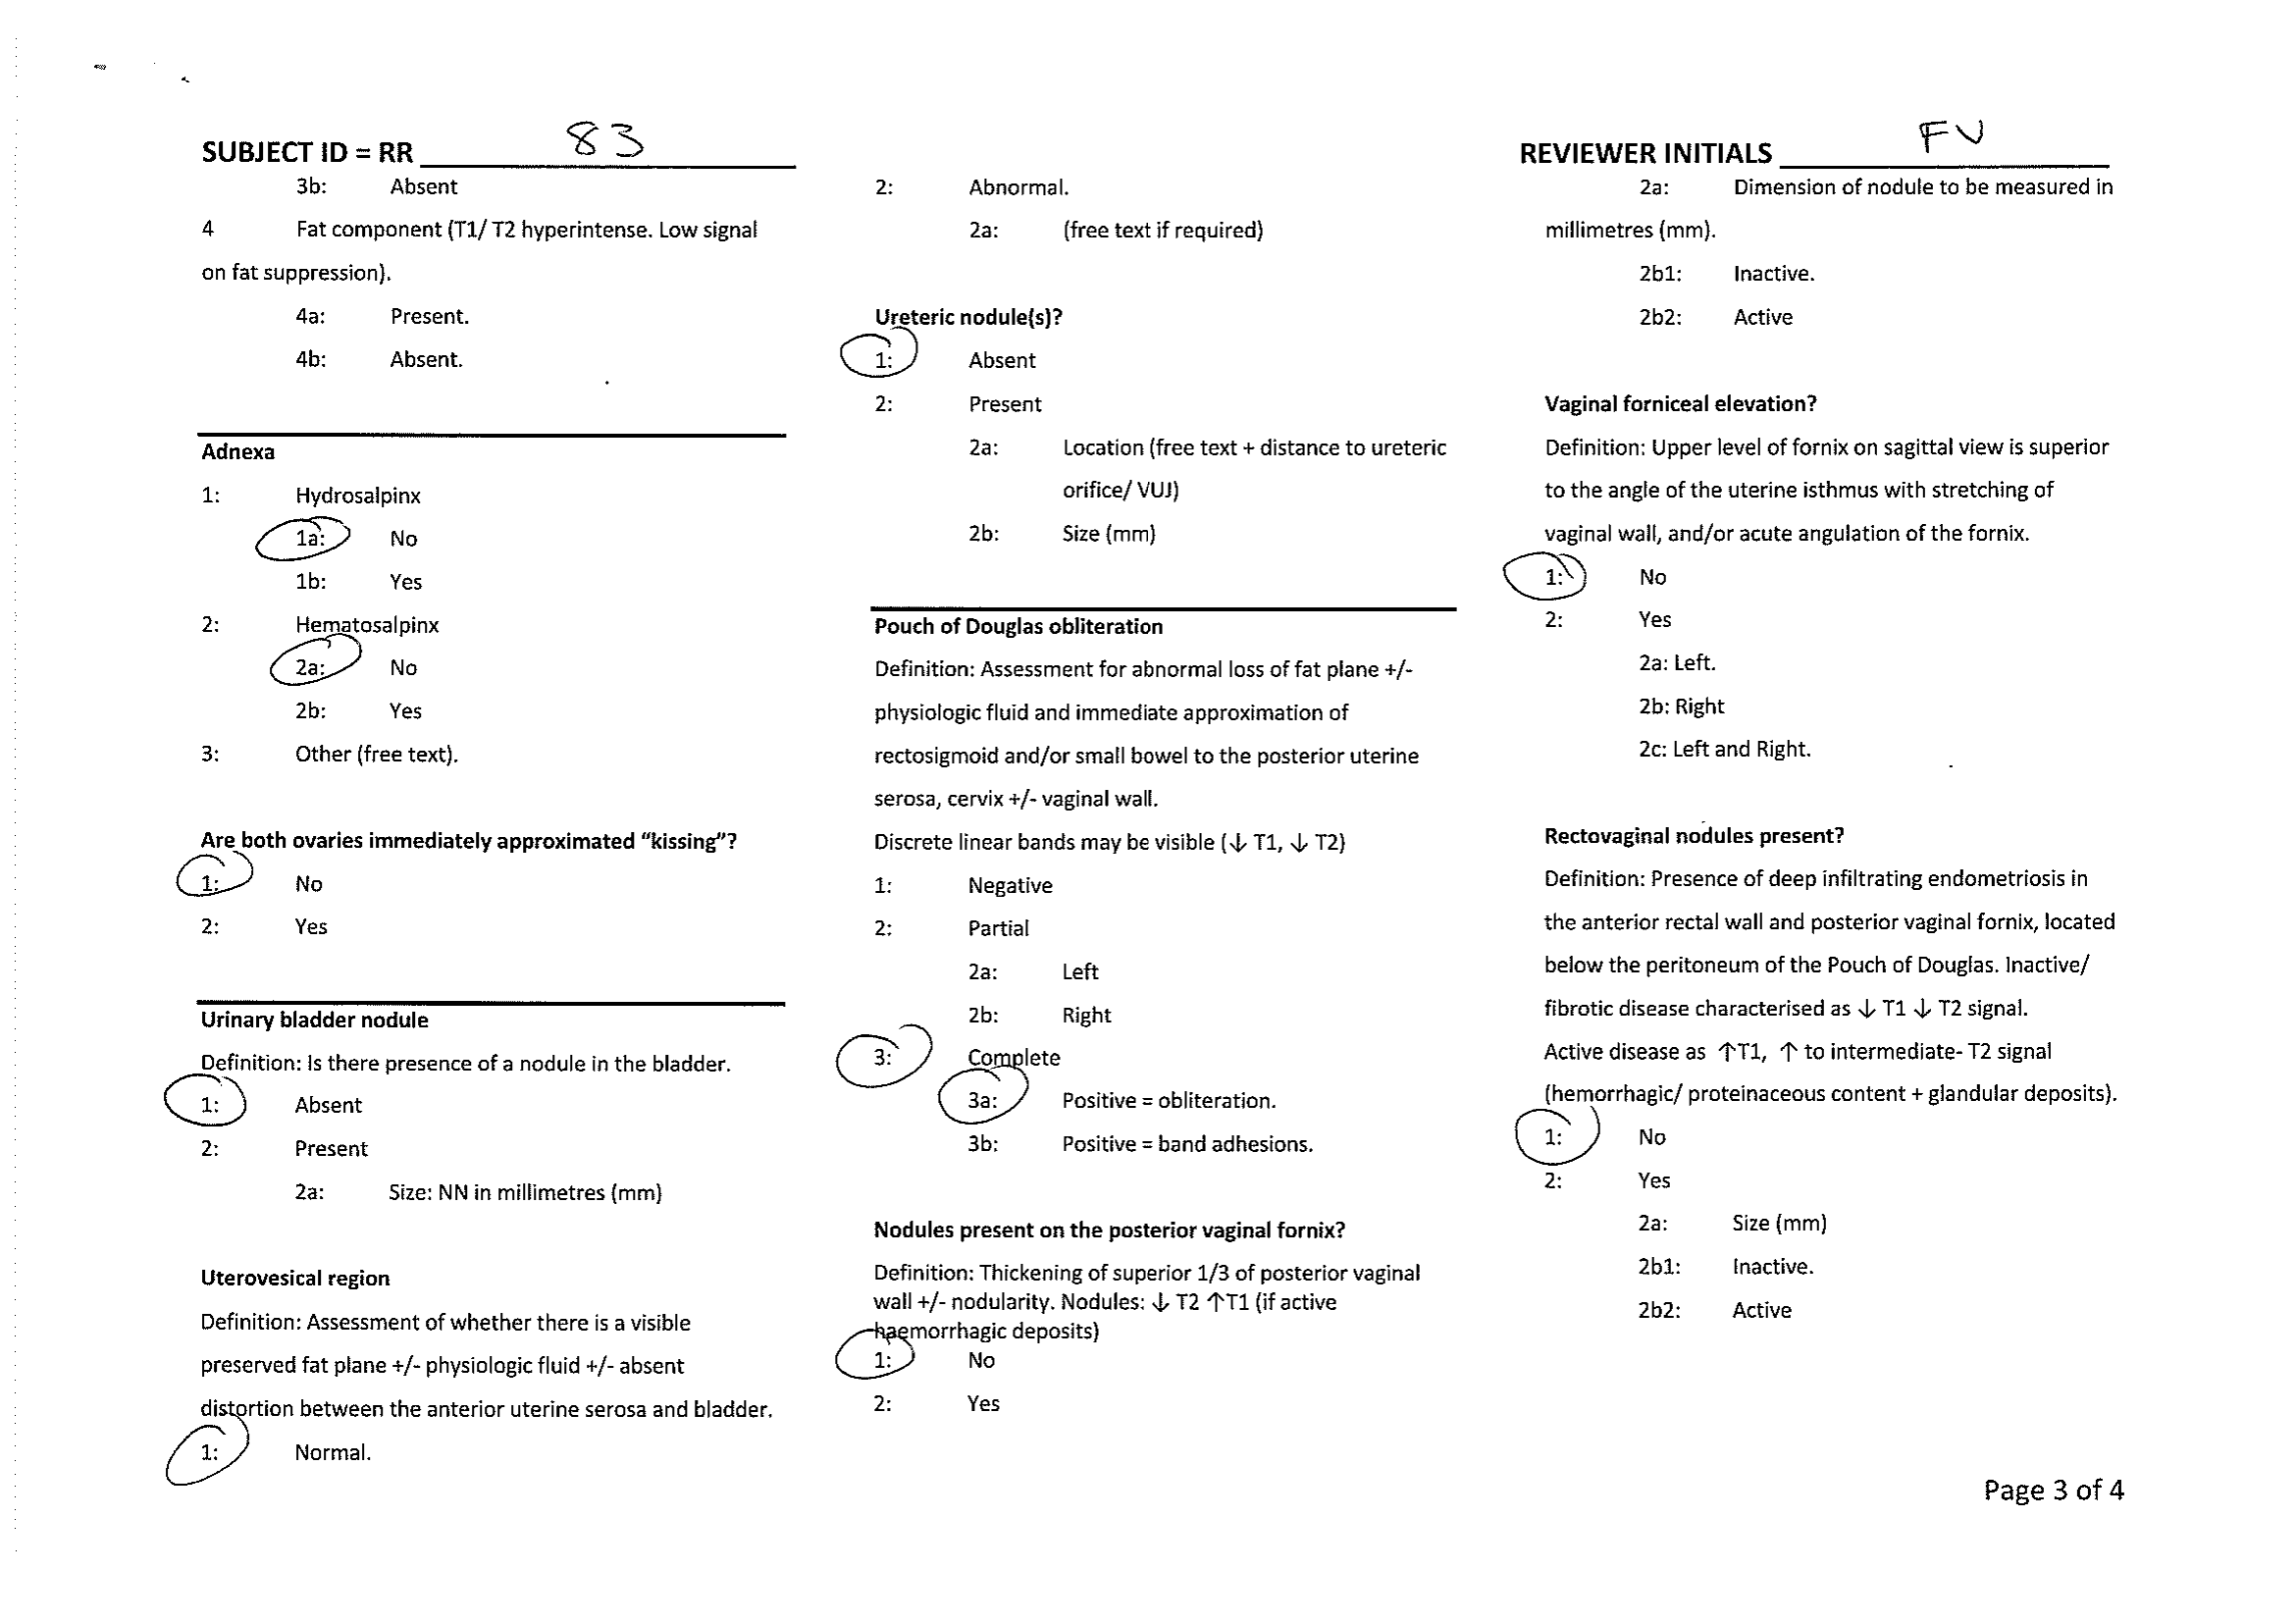 SUBJECT ID = RR 83
3b: Absent
4 Fat component (T1/ T2 hyperintense. Low signal
on fat suppression).
4a: Present.
4b: Absent.
Adnexa
1: Hydrosalpinx
1a: No
1b: Yes
2: Hematosalpinx
2a: No
2b: Yes
3: Other (free text).
Are both ovaries immediately approximated “kissing”?
1: No
2: Yes
Urinary bladder nodule
Definition: Is there presence of a nodule in the bladder.
1: Absent
2: Present
2a: Size: NN in millimetres (mm)
Uterovesical region
Definition: Assessment of whether there is a visible
preserved fat plane +/- physiologic fluid +/- absent
distortion between the anterior uterine serosa and bladder.
1: Normal.
2: Abnormal.
2a: (free text if required)
Ureteric nodule(s)?
1: Absent
2: Present
2a: Location (free text + distance to ureteric
orifice/ VUJ)
2b: Size (mm)
Pouch of Douglas obliteration
Definition: Assessment for abnormal loss of fat plane +/-
physiologic fluid and immediate approximation of
rectosigmoid and/or small bowel to the posterior uterine
serosa, cervix +/- vaginal wall.
Discrete linear bands may be visible (↓ T1, ↓ T2)
1: Negative
2: Partial
2a: Left
2b: Right
3: Complete
3a: Positive = obliteration.
3b: Positive = band adhesions.
Nodules present on the posterior vaginal fornix?
Definition: Thickening of superior 1/3 of posterior vaginal
wall +/- nodularity. Nodules: ↓ T2 ↑T1 (if active
haemorrhagic deposits)
1: No
2: Yes
REVIEWER INITIALS FV
2a: Dimension of nodule to be measured in
millimetres (mm).
2b1: Inactive.
2b2: Active
Vaginal forniceal elevation?
Definition: Upper level of fornix on sagittal view is superior
to the angle of the uterine isthmus with stretching of
vaginal wall, and/or acute angulation of the fornix.
1: No
2: Yes
2a: Left.
2b: Right
2c: Left and Right.
Rectovaginal nodules present?
Definition: Presence of deep infiltrating endometriosis in
the anterior rectal wall and posterior vaginal fornix, located
below the peritoneum of the Pouch of Douglas. Inactive/
fibrotic disease characterised as ↓ T1 ↓ T2 signal.
Active disease as ↑T1, ↑ to intermediate- T2 signal
(hemorrhagic/ proteinaceous content + glandular deposits).
1: No
2: Yes
2a: Size (mm)
2b1: Inactive.
2b2: Active
Page 3 of 4